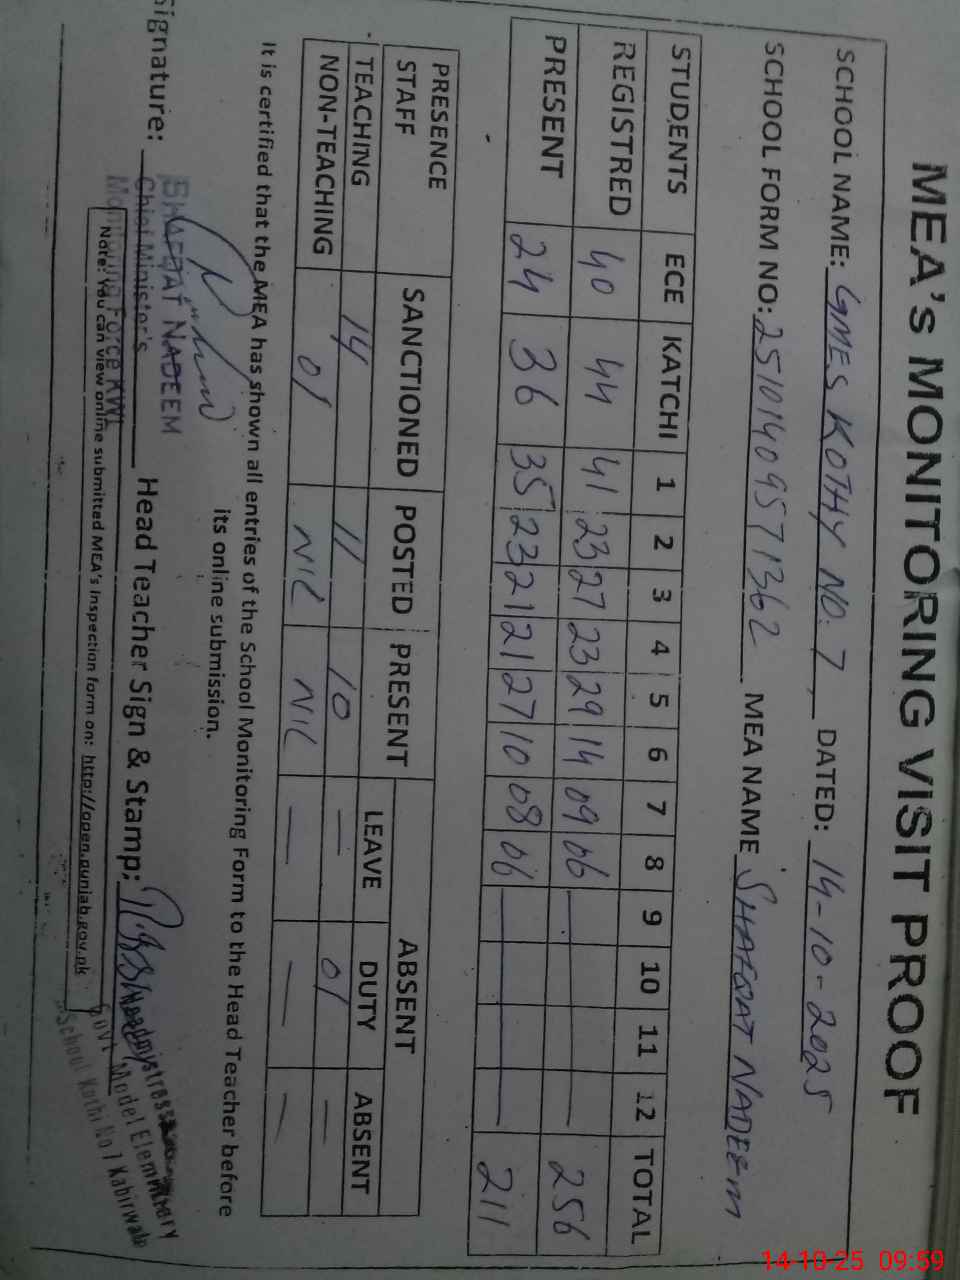 MEA's MONITORING VISIT PROOF
SCHOOL NAME: GMES KOTHY NO. 7, DATED: 14-10-2025
SCHOOL FORM NO: 25101409571362 MEA NAME SHAFQAT NADEEM
STUDENTS ECE KATCHI 1 2 3 4 5 6 7 8 9 10 11 12 TOTAL
REGISTRED 40 44 41 23 27 23 29 14 09 06 — 256
PRESENT 24 36 35 23 21 21 27 10 08 06 — 211
PRESENCE STAFF SANCTIONED POSTED PRESENT ABSENT
LEAVE DUTY ABSENT
TEACHING 14 11 10 — 01 —
NON-TEACHING 01 NIL NIL — — —
It is certified that the MEA has shown all entries of the School Monitoring Form to the Head Teacher before
its online submission.
Signature: Head Teacher Sign & Stamp:
SHAFQAT NADEEM
Chief Minister's
Monitoring Force KWL
Headmistress
Govt Model Elementary
School Kothi No 7 Kabirwala
Note: You can view online submitted MEA's Inspection form on: http://open.punjab.gov.pk
14-10-25 09:59